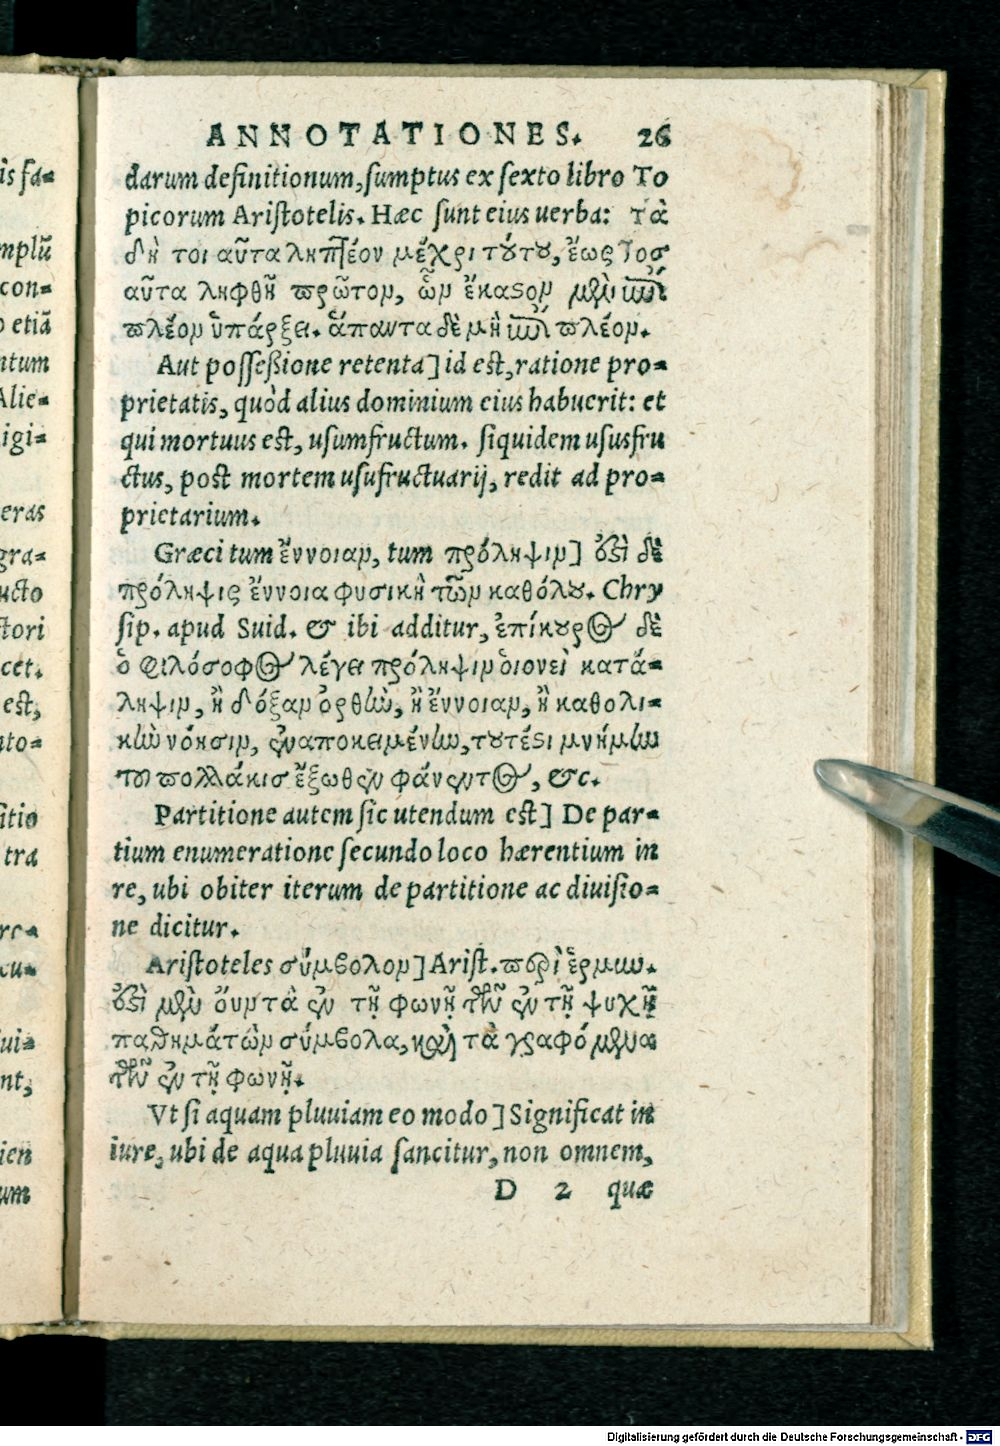 ANNOTATIONES. 26
darum definitionum, sumptus ex sexto libro To
picorum Aristotelis. Hæc sunt eius uerba: τὰ
δὴ τοι αῦτα ληπτέον μέχρι τούτου, ἕως τοσ
αῦτα ληφθῆ πρῶτομ, ὧμ ἕκαστομ μὲν ἐπὶ
πλέομ ὑπάρξει. ἅπαντα δὲ μὴ ἐπὶ πλέομ.
Aut possessione retenta] id est, ratione pro=
prietatis, quòd alius dominium eius habuerit: et
qui mortuus est, usumfructum. siquidem ususfru
ctus, post mortem usufructuarij, redit ad pro=
prietarium.
Græci tum ἔννοιαμ, tum πρόληψιμ] ἐστὶ δὲ
πρόληψις ἔννοια φυσικὴ τῶμ καθόλου. Chry
sip. apud Suid. & ibi additur, ἐπίκουρος δὲ
ὁ Φιλόσοφος λέγει πρόληψιμ ὁιονεὶ κατά=
ληψιμ, ἢ δόξαμ ὀρθὼ, ἢ ἔννοιαμ, ἢ καθολι=
κὼ νόησιμ, ἐναποκειμένω, τουτέστι μνήμω
του πολλάκισ ἔξωθεν φάνεντος, &c.
Partitione autem sic utendum est] De par=
tium enumeratione secundo loco hærentium in
re, ubi obiter iterum de partitione ac diuisio=
ne dicitur.
Aristoteles σύμβολομ] Arist. περὶ ἑρμω.
ἐστὶ μὲν ὄυμ τὰ ἐν τῇ φωνῇ τῶν ἐν τῇ ψυχῇ
παθημάτὼμ σύμβολα, καὶ τὰ γραφόμενα
τῶν ἐν τῇ φωνῇ.
Vt si aquam pluuiam eo modo] Significat in
iure, ubi de aqua pluuia sancitur, non omnem,
D 2 quæ
is fa=
mplū
con=
o etiā
ntum
Alie=
igi=
eras
gra=
ucto
tori
cet.
est,
to=
itio
tra
re=
cu=
ui=
nt,
ien
um
Digitalisierung gefördert durch die Deutsche Forschungsgemeinschaft - DFG